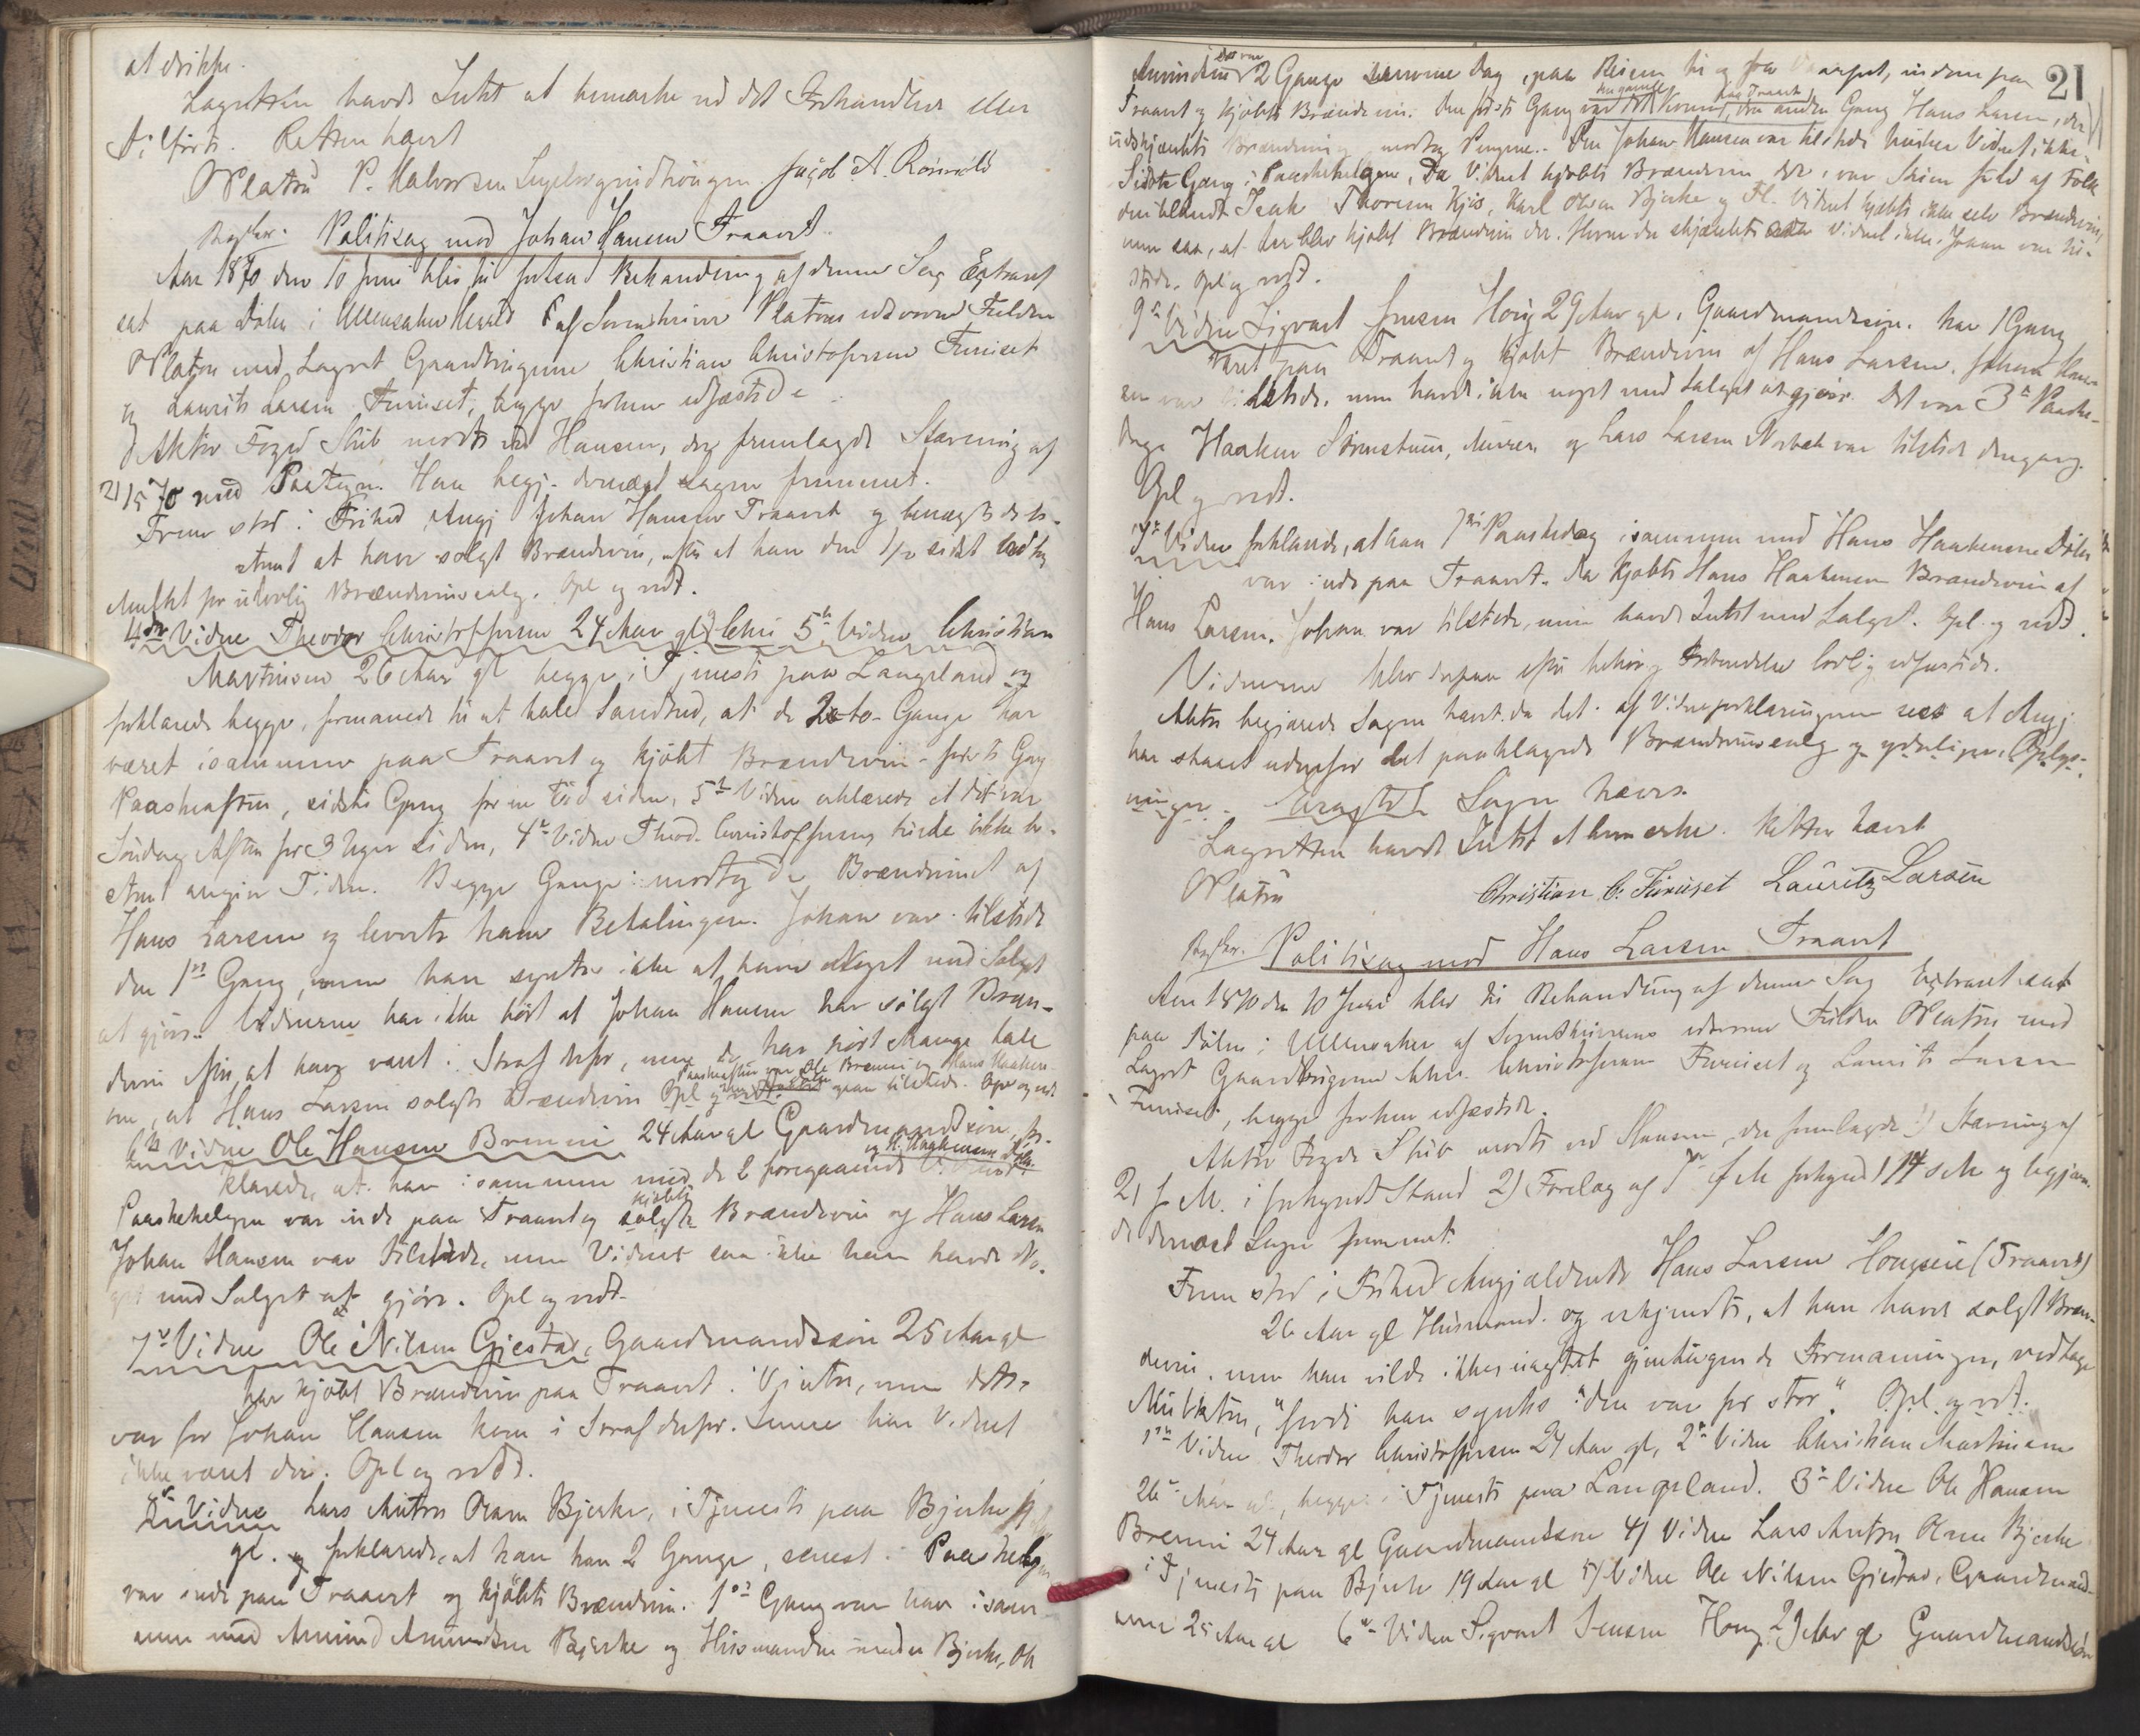 at drikke.
Lagretten havde Intet at bemærke ved det Forhandlede eller
Tilførte. Retten hævet
OPlatou P. Halvorsen Jagob A.
Politisag mod Johan Hansen Traaret
Aar 1870 den 10 Juni blev til fortsat Behandling af denne Sag Extraret
sat paa Døhlen i Ullensaker Herred af Sorenskriver Platous edsvorne Fuldm
OPlatou med Lagret Gaardbrugerne Christian Christophersen Furuset
og Laurits Larsen Furuset, begge forhen edfæstede
Aktor Foged Stub mødte ved Hansen, der fremlagde Stævning af
21/5 70 med Paategn. Han begj. dernæst Sagen fremmet.
Frem stod i Frihed Angj Johan Hansen Traaret og benægtede be-
stemt at have solgt Brændevin, efter at han den sidst vedtog
Mulkt for ulovlig Brændevinsalg. Opl og vedt.
4de Vidne Theodor Christoffersen 24 Aar gl 5te Vidne Christian
Martinsen 26 Aar gl begge i Tjeneste paa Langeland og
forklarede begge, formanede til at tale Sandhed, at de to Gange har
været isammen paa Traaret og kjøbt Brændevin - første Gang
Paaskeaften, sidste Gang for en Tid siden, 5te Vidne erklærede at det var
Søndag Aften for 3 Uger siden, 4de Vidne Theod. Christoffersen turde ikke be-
stemt angive Tiden. Begge Gange modtog de Brændevinet af
Hans Larsen og leverte ham Betalingen. Johan var tilstede
den 1ste Gang, men han syntes ikke at have Noget med Salget
at gjøre. Vidnerne har ikke hørt at Johan Hansen har solgt Bræn-
devin efter at have været i Straf derfor, men de har hørt Mange tale
om, at Hans Larsen solgte Brændevin Opl og vedt. Paaskeaften var Ole Brenni og Hans Haakens tilstede. Opl og vedt
6te Vidne Ole Hansen Brenni 24 Aar gl Gaardmandssøn for-
klarede, at han isammen med de 2 foregaaende Vidner og H. Haakensen Døhlen
Paaskehelgen var inde paa Traaret og solgte kjøbte Brændevin af Hans Larsen
Johan Hansen var tilstede, men Vidnet saa ikke han havde No-
get med Salget at gjøre. Opl og vedt.
7de Vidne Ole Nilsen Gjestad, Gaardmandssøn 25 Aar gl
har kjøbt Brændevin paa Traaret i Vinter, men dette
var før Johan Hansen kom i Straf derfor. Senere har Vidnet
ikke været der. Opl og vedt.
8de Vidne Lars Anton Olsen Bjerke, i Tjeneste paa Bjerke 19
gl. og forklarede, at han har 2 Gange, senest i Paaskehelgen
var inde paa Traaret og kjøbte Brændevin. 1ste Gang var han isam-
men med Amund Amundsen Bjerke og Husmanden under Bjerke, Ole
21
Amundsen Det var 2 Gange samme Dag, paa Reisen til og fra indom paa
Traaret og kjøbte Brændevin. Den første Gang den anden Gang Hans Larsen, der
udskjænkte Brændevin og modtog Pengene. Om Johan Hansen var tilstede husker Vidnet ikke.
Sidste Gang i Paaskehelgen, da Vidnet kjøbte Brændevin der, var Stuen fuld af Folk
deriblandt Isak Thoresen Kjos, Karl Olsen Bjerke og Fl. Vidnet kjøbte ikke selv Brændevin,
men saa, at der blev kjøbt Brændevin der. Hvem der skjænkte Vidnet ikke. Johan var til-
stede. Opl og vedt.
9de Vidne Sigvart Jensen Houg 29 Aar gl, Gaardmandssøn. har 1 Gang
været paa Traaret og kjøbt Brændevin af Hans Larsen. Johan Han-
sen var tilstede, men havde ikke noget med Salget at gjøre. Det var 3de Paaske-
dag. Haaken Murer og Lars Larsen Norbæk var tilstede dengang.
Opl og vedt.
7de Vidne forklarede, at han 1ste Paaskedag isammen med Hans Haakensen Døhlen
var inde paa Traaret. Da kjøbte Hans Haakensen Brændevin af
Hans Larsen. Johan var tilstede, men havde Intet med Salget. Opl. og vedt.
Vidnerne blev derpaa efter behørig Forberedelse lovlig edfæstede.
Aktor begjærede Sagen hævet. da det af Vidneforklaringerne sees at Angj.
har staaet udenfor det paaklagede Brændevinsalg og yderligere Oplys-
ninger. Sagen hæves.
Lagretten havde Intet at bemærke. Retten hævet
OPlatou Christian C. Furuset Lauritz Larsen
Politisag mod Hans Larsen Traaret
Aar 1870 den 10 Juni blev til Behandling af denne Sag Extraret sat
paa Døhlen i Ullensaker af Sorenskriverens edsvorne Fuldm OPlatou med
Lagret Gaardbrugerne Chr. Christophersen Furuset og Laurits Larsen
Furuset, begge forhen edfæstede.
Aktor Foged Stub mødte ved Hansen, der fremlagde 1) Stævning af
21 f M. i forkyndt Stand 2) Forelæg af 7de f M forkyndt 14 s M og begjæ-
de dernæst Sagen fremmet.
Frem stod i Frihed Angjældende Hans Larsen (Traaret)
26 Aar gl Husmand. og erkjendte, at han havde solgt Bræn-
devin. men han vilde ikke uagtet gjentagende Formaninger, vedtage
Mulkten, "fordi han syntes "den var for stor". Opl. og vedt.
1ste Vidne Theodor Christoffersen 24 Aar gl, 2de Vidne Christian Martinsen
26 Aar gl, begge i Tjeneste paa Langeland. 3de Vidne Ole Hansen
Brenni 24 Aar gl Gaardmandssøn 4) Vidne Lars Anton Olsen Bjerke
i Tjeneste paa Bjerke 19 Aar gl 5) Vidne Ole Nilsen Gjestad, Gaardmand-
søn 25 Aar gl 6te Vidne Sigvart Jensen Houg 29 Aar gl Gaardmandssøn